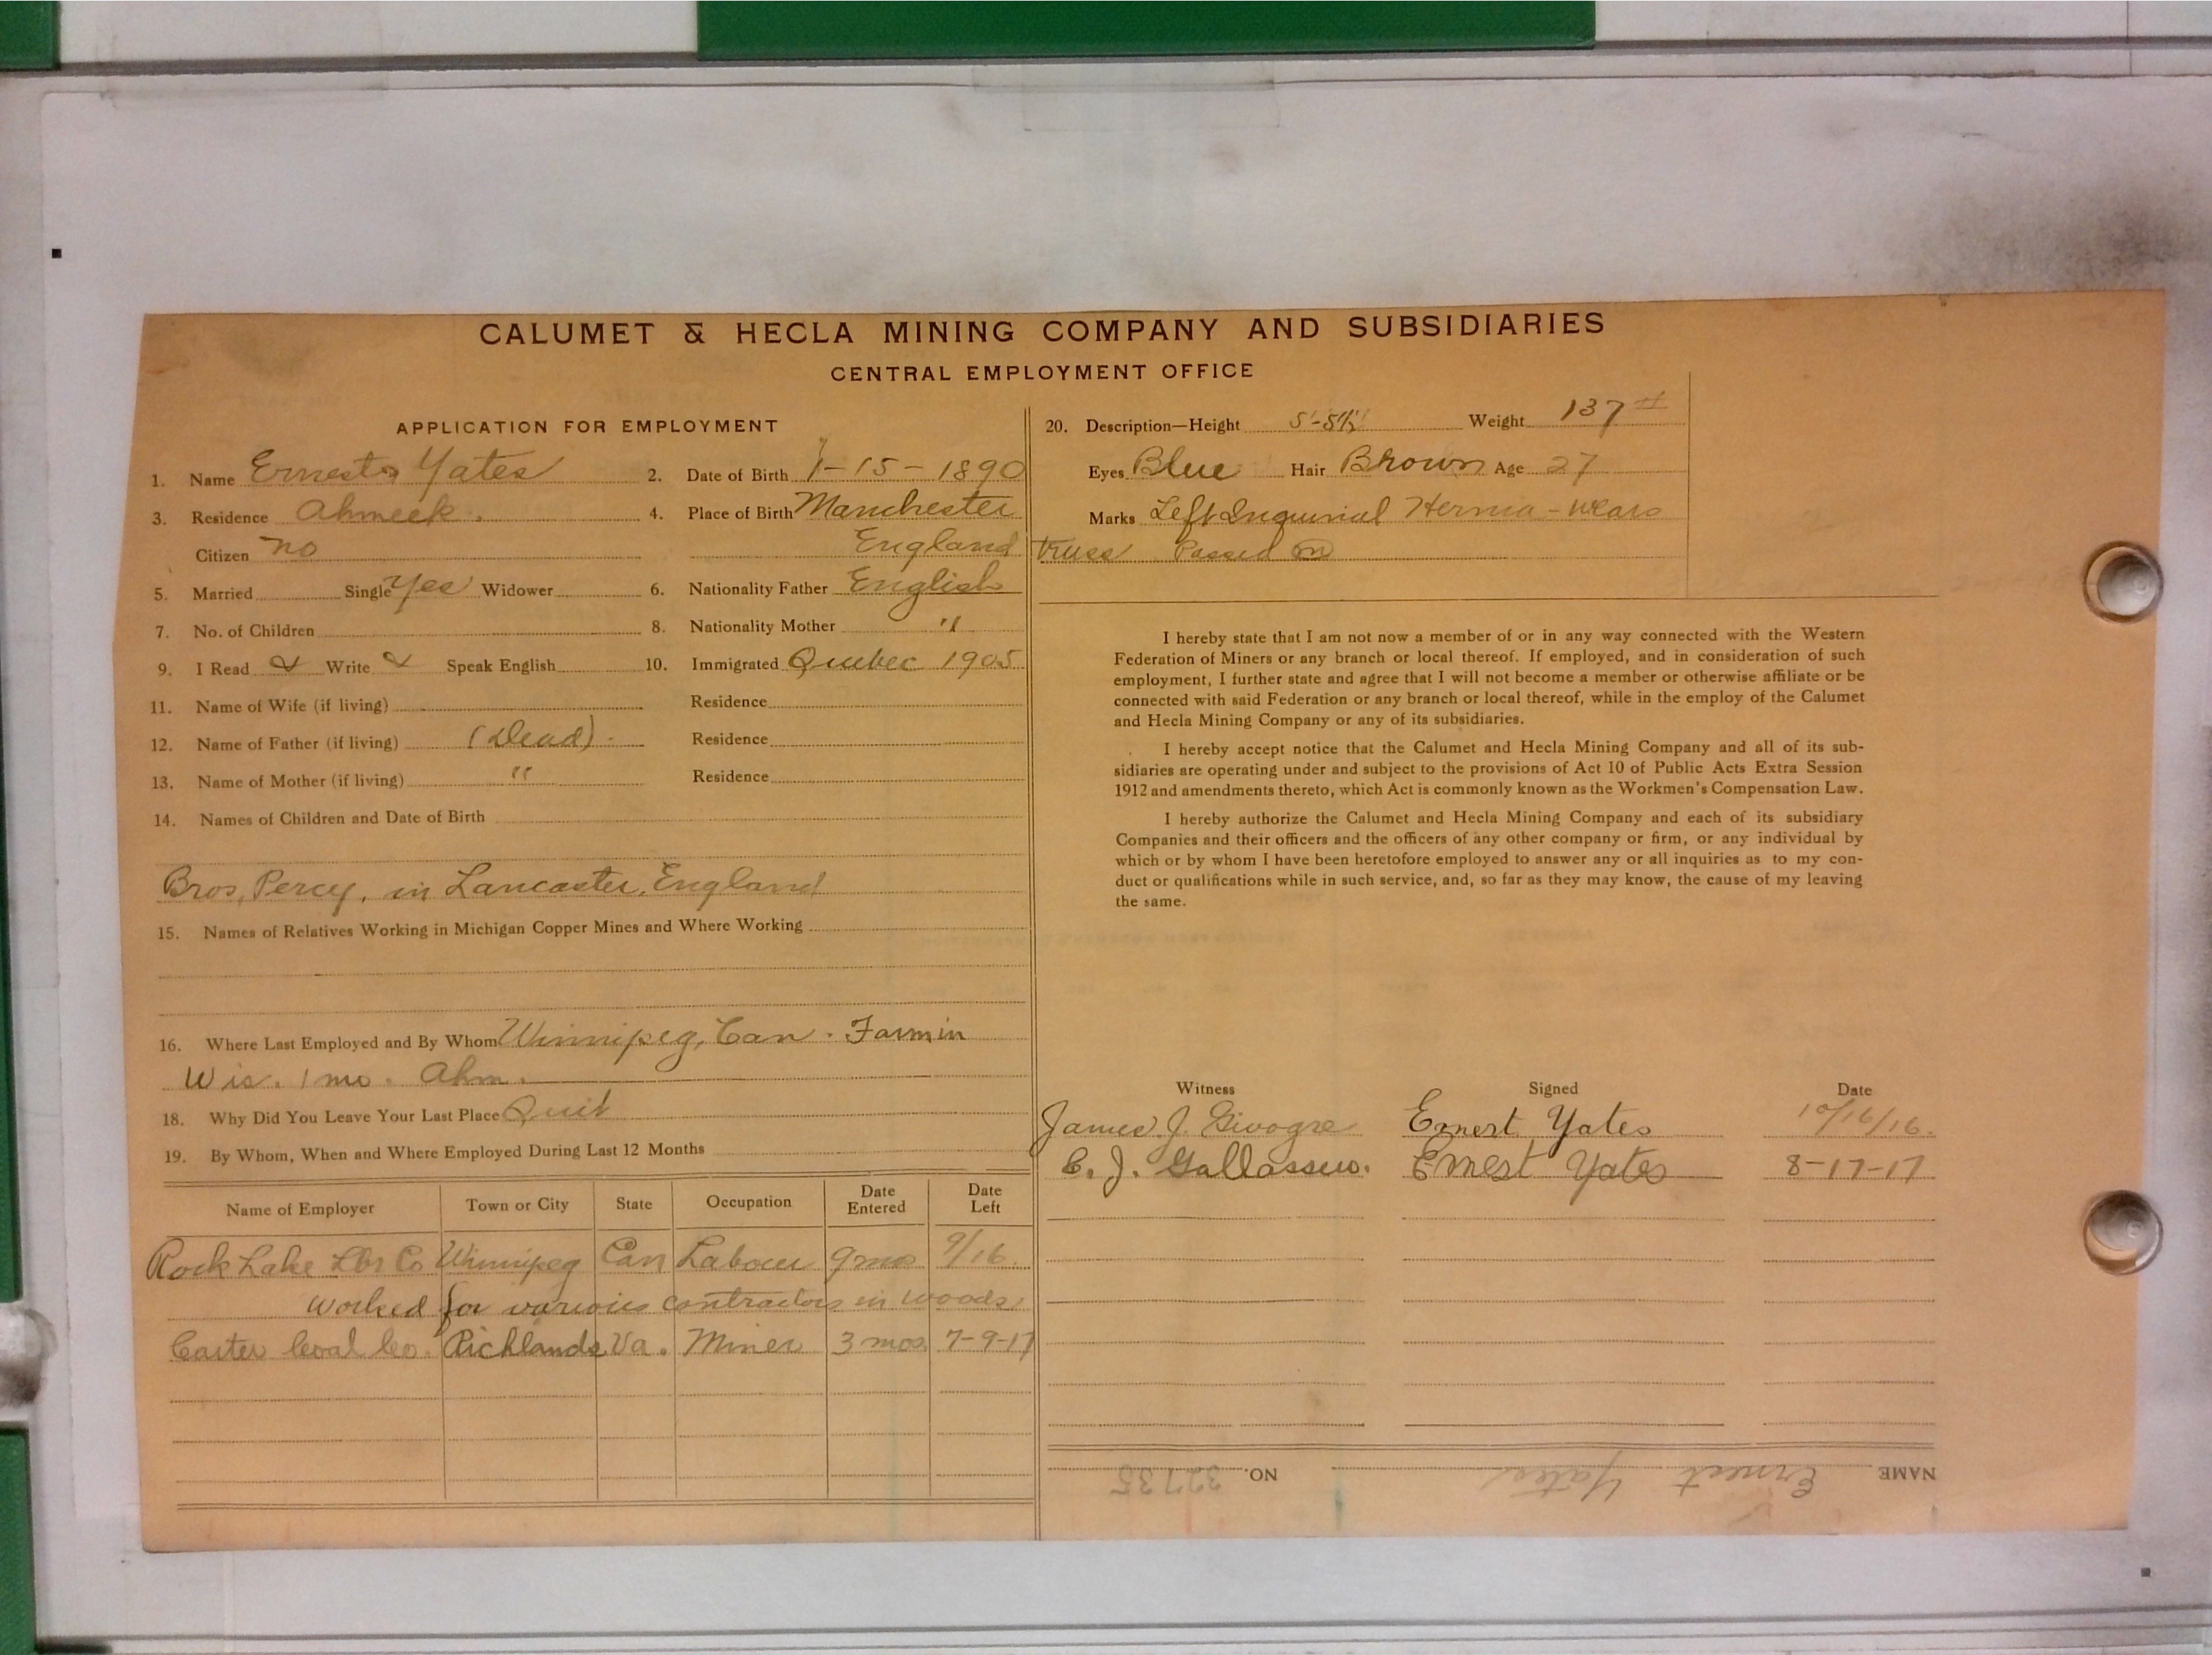 CALUMET & HECLA MINING COMPANY AND SUBSIDIARIES
CENTRAL EMPLOYMENT OFFICE
APPLICATION FOR EMPLOYMENT
1. Name Ernest Yates 2. Date of Birth 1-15-1890
3. Residence Ahmeek. 4. Place of Birth Manchester
Citizen no England
5. Married Single Yes Widower 6. Nationality Father English
7. No. of Children 8. Nationality Mother "
9. I Read & Write & Speak English 10. Immigrated Quebec 1905
11. Name of Wife (if living) Residence
12. Name of Father (if living) (Dead). Residence
13. Name of Mother (if living) " Residence
14. Names of Children and Date of Birth
Bros, Percy, in Lancaster, England
15. Names of Relatives Working in Michigan Copper Mines and Where Working
16. Where Last Employed and By Whom Winnipeg, Can. Farm in
Wis. 1 mo. Ahm.
18. Why Did You Leave Your Last Place Quit
19. By Whom, When and Where Employed During Last 12 Months
Name of Employer Town or City State Occupation Date Entered Date Left
Rock Lake Lbr Co Winnipeg Can Labour 9 mos 9/16.
Worked for various contractors in woods
Carter Coal Co. Richlands Va. Miner 3 mos 7-9-17
20. Description—Height 5'-5½" Weight 137#
Eyes Blue Hair Brown Age 27
Marks Left Inguinial Hernia - wears
truss Passed
I hereby state that I am not now a member of or in any way connected with the Western
Federation of Miners or any branch or local thereof. If employed, and in consideration of such
employment, I further state and agree that I will not become a member or otherwise affiliate or be
connected with said Federation or any branch or local thereof, while in the employ of the Calumet
and Hecla Mining Company or any of its subsidiaries.
I hereby accept notice that the Calumet and Hecla Mining Company and all of its sub-
sidiaries are operating under and subject to the provisions of Act 10 of Public Acts Extra Session
1912 and amendments thereto, which Act is commonly known as the Workmen's Compensation Law.
I hereby authorize the Calumet and Hecla Mining Company and each of its subsidiary
Companies and their officers and the officers of any other company or firm, or any individual by
which or by whom I have been heretofore employed to answer any or all inquiries as to my con-
duct or qualifications while in such service, and, so far as they may know, the cause of my leaving
the same.
Witness Signed Date
James J. Ernest Yates 10/16/16.
C. J. Ernest Yates 8-17-17
NAME Ernest Yates NO. 32735